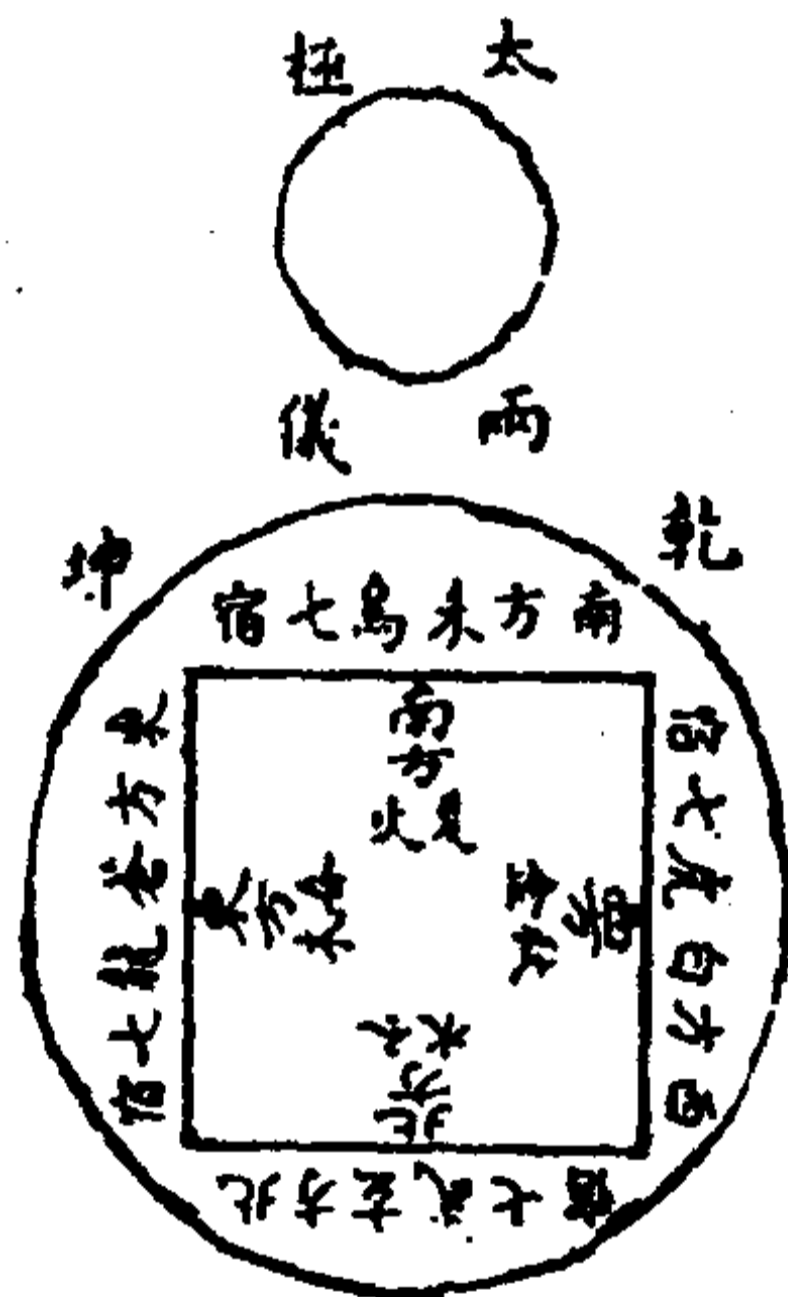 太極
兩儀
乾
坤
南方朱鳥七宿
東方蒼龍七宿
西方白虎七宿
北方玄武七宿
南方
火
東方
木
西方
金
北方
水